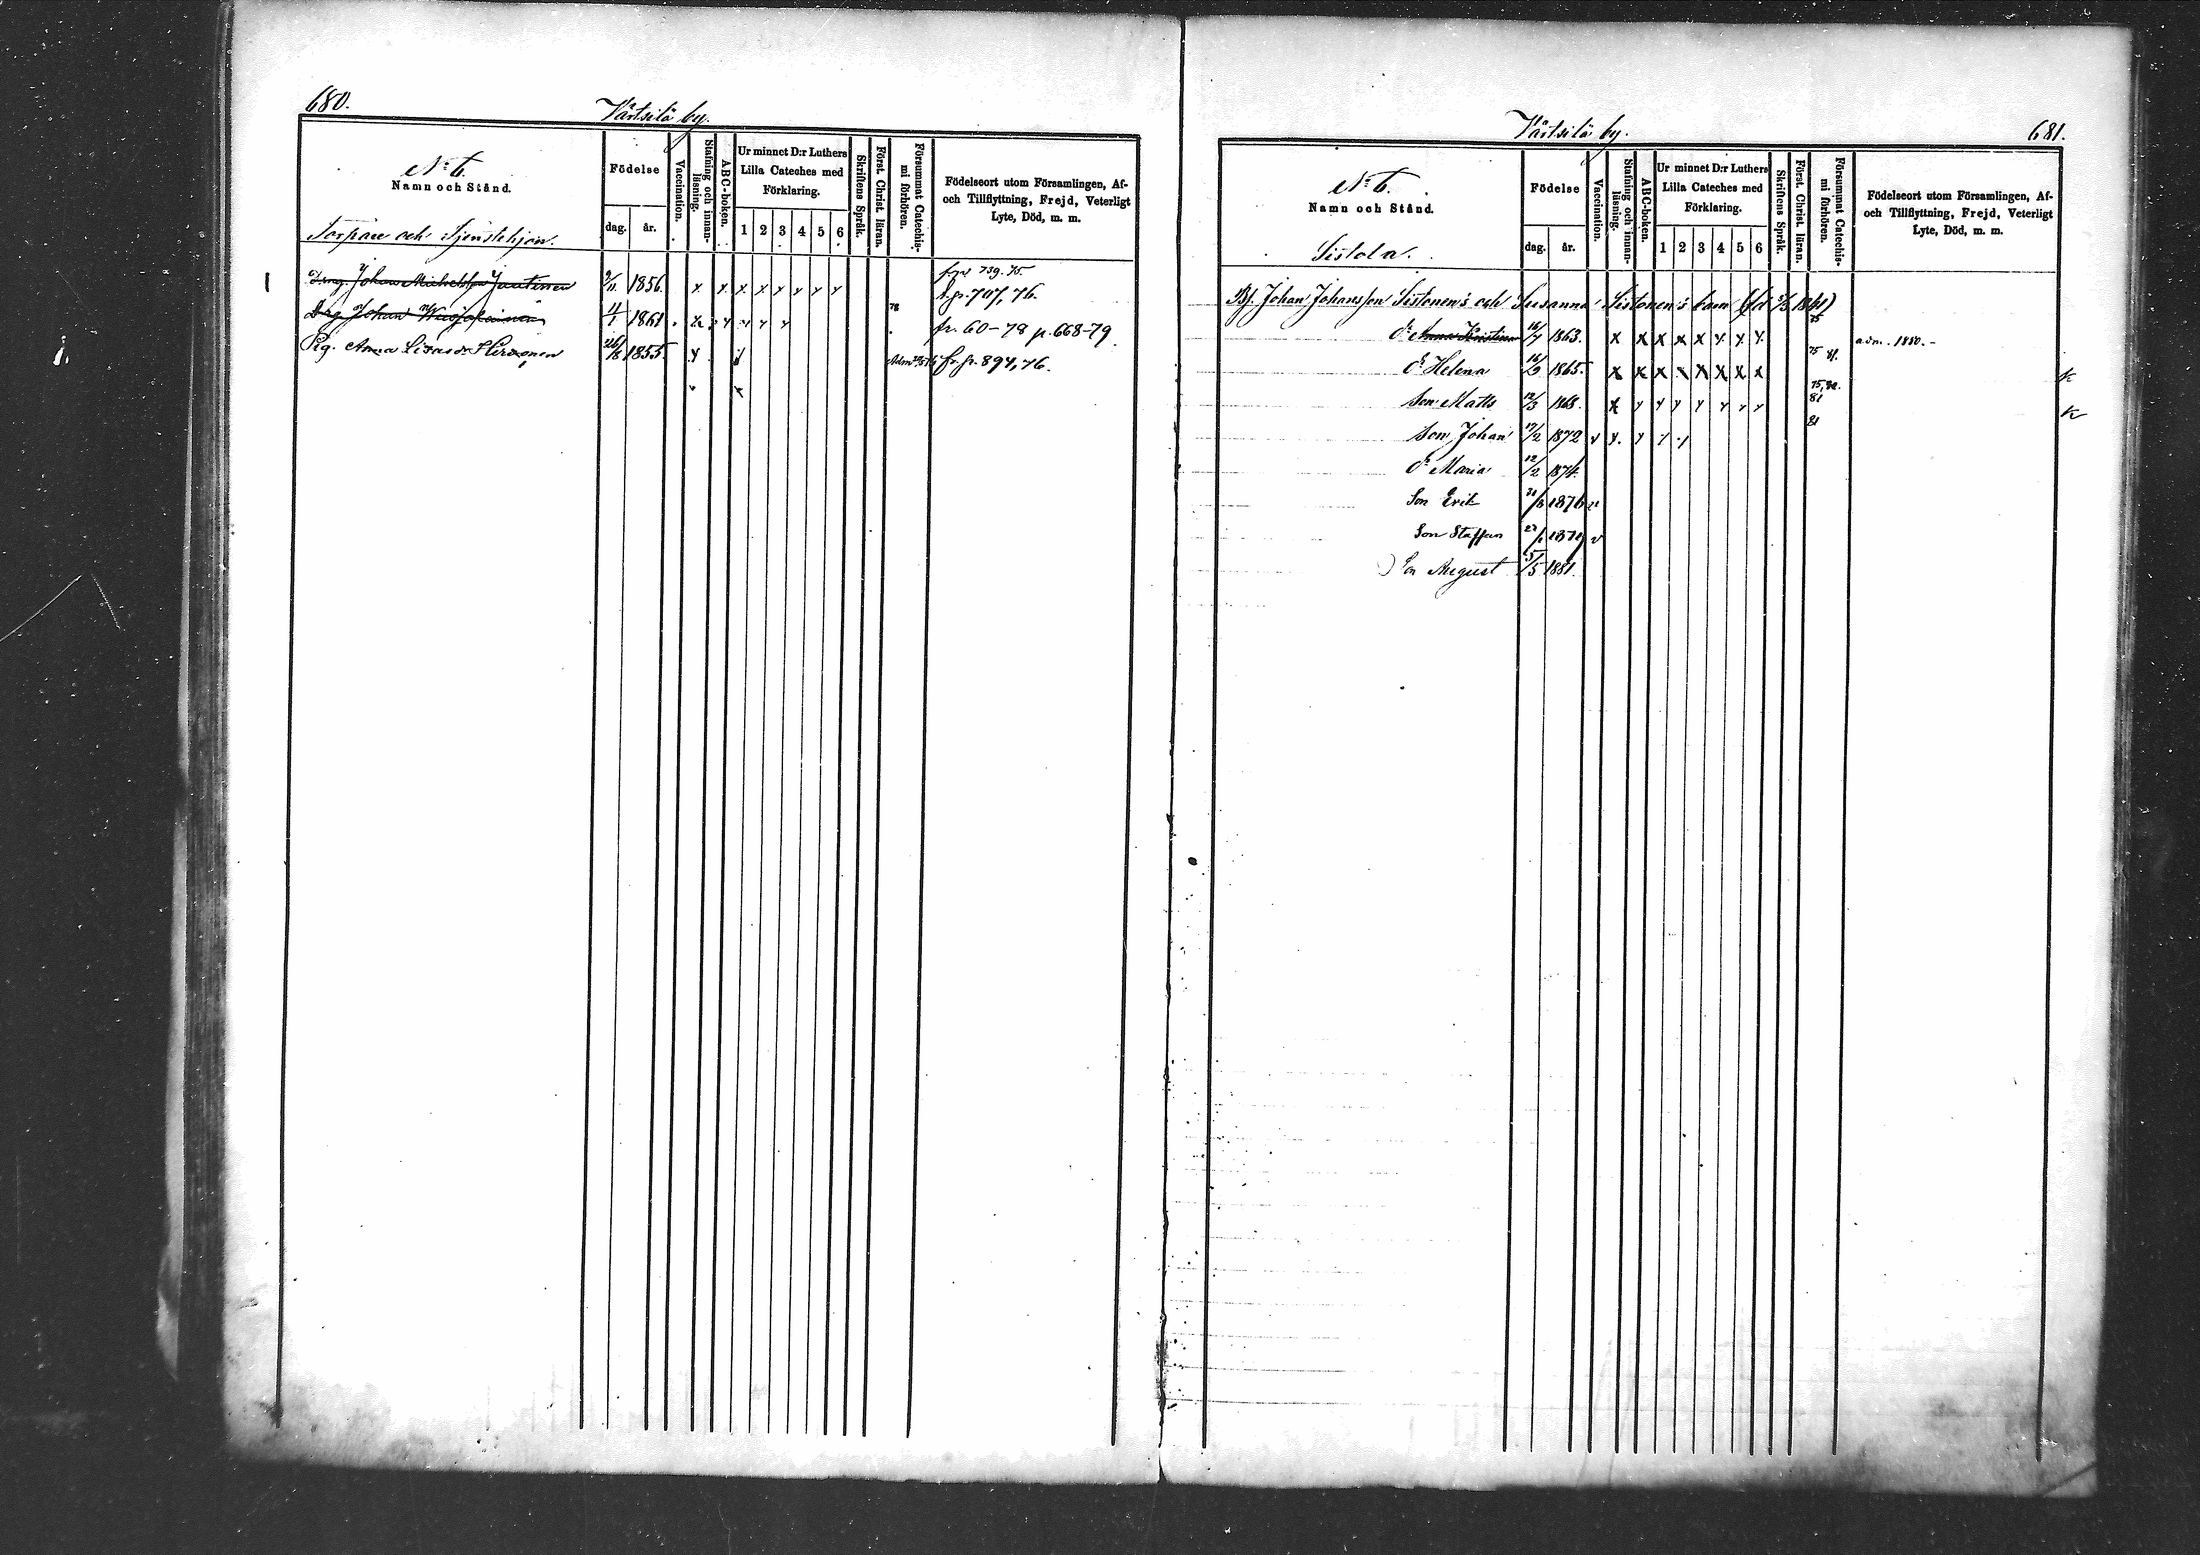 680.
Värtsilä by.
N:o 6.
Namn och Stånd.
Födelse
dag.
år.
Vaccination.
Stafning och innanläsning.
ABC-boken.
Ur minnet D:r Luthers
Lilla Cateches med
Förklaring.
1 2 3 4 5 6
Skriftens Språk.
Först. Christ. läran.
Försummat Catechismi förhören.
Födelseort utom Församlingen, Af-
och Tillflyttning, Frejd, Veterligt
Lyte, Död, m. m.
Torpare och Tjenstehjon.
Drng. Johan Michelsson 1856. x x x x x x x x
739. 75.
707, 76.
Drg. Johan 1861 78 fr. 60-78 p. 668-79
Pig. Anna Hirvonen 1855 fr. 894, 76.
Värtsilä by.
681.
N:o 6.
Namn och Stånd.
Födelse
dag.
år.
Vaccination.
Stafning och innanläsning.
ABC-boken.
Ur minnet D:r Luthers
Lilla Cateches med
Förklaring.
1 2 3 4 5 6
Skriftens Språk.
Först. Christ. läran.
Försummat Catechismi förhören.
Födelseort utom Församlingen, Af-
och Tillflyttning, Frejd, Veterligt
Lyte, Död, m. m.
Sistola.
Johan Johansson Sistonen's och Susanna Sistonen's barn
dr Anna Kristina 16/7 1863. x x x x x x x x 75 adm. 1880.-
dr Helena 1865. x x x x x x x x 75 81.
Son Matts 12/3 1868. 75, 80. 81
Son Johan 17/2 1872 81
dr Maria 12/2 1874.
Son Erik 1876 v
Son Staffan 1879 v
Son August 5/5 1881.